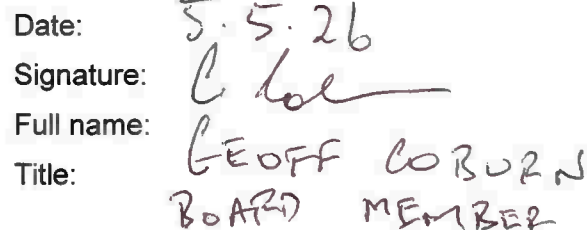 Date: 5.5.26
Signature:
Full name: GEOFF COBURN
Title: BOARD MEMBER